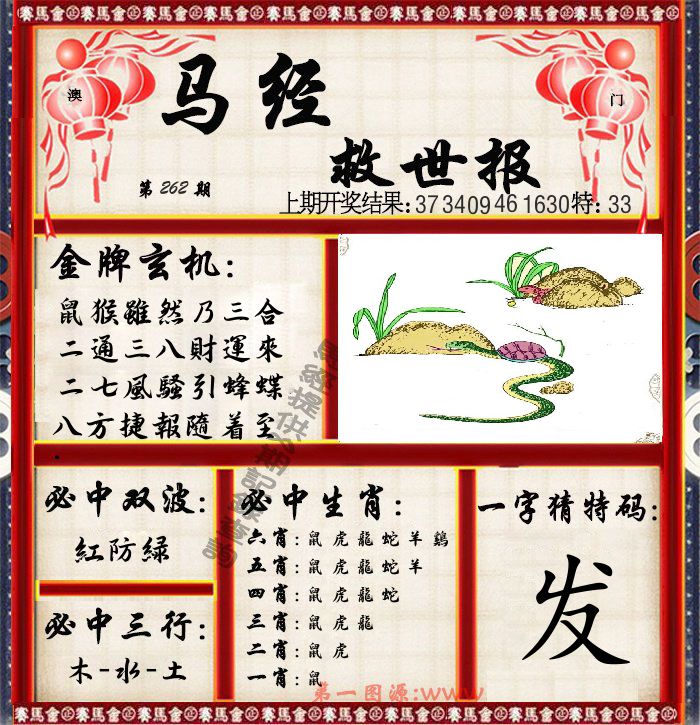 澳
门
马经
救世报
第262期
上期开奖结果:37 34 09 46 16 30 特:33
金牌玄机:
鼠猴雖然乃三合
二通三八財運來
二七風騷引蜂蝶
八方捷報隨着至
必中双波:
紅防緑
必中三行:
木-水-土
必中生肖:
六肖:鼠虎龍蛇羊鷄
五肖:鼠虎龍蛇羊
四肖:鼠虎龍蛇
三肖:鼠虎龍
二肖:鼠虎
一肖:鼠
一字猜特码:
发
第一图源:www